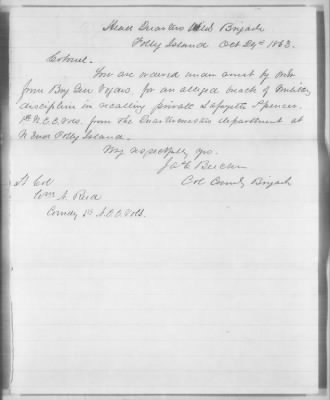 Head Quarters Wilds Brigade
Folly Island Oct 29th 1863.
Colonel.
You are ordered in arrest by order
from Brig Gen Vogdes. for an alleged breach of Military
discipline in recalling private Lafayette Spencer.
1st N.C.C.Vols. from the Quartermasters department at
N End Folly Island.
Very respectfully yrs.
Jas C Beecher
Col Comdg Brigade
Lt Col
Wm N. Reed
Comdg 1st N.C.C. Vols.